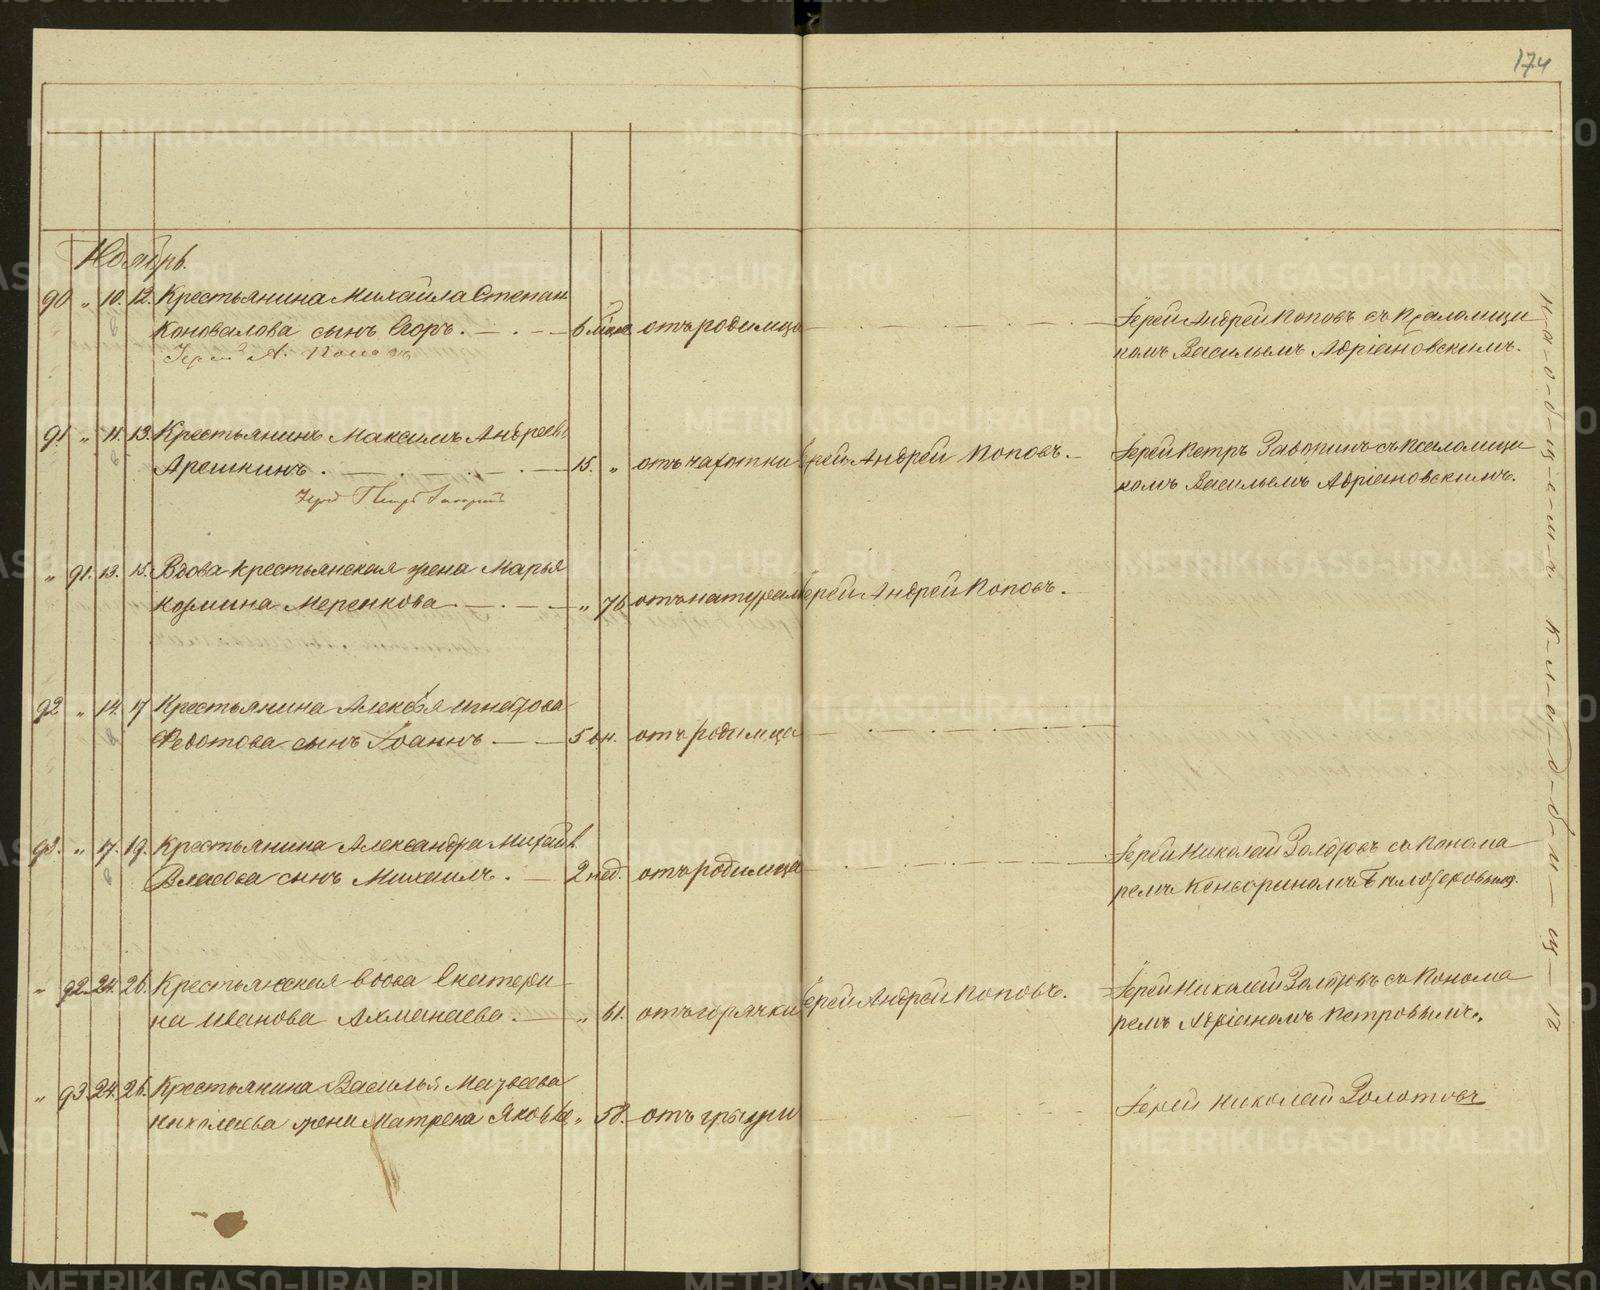 174
Ноябрь.
90 " 10. 12. Крестьянина Михаила Степан.
Коновалова сынъ Егоръ. 6 мѣсяц. отъ родимца
Іерей Андрей Поповъ съ Псаломщи
комъ Васильемъ Адріановскимъ.
Іерей А. Поповъ
91. " 11. 13. Крестьянинъ Максимъ Андреевъ
Арешкинъ. 15. " отъ чахотки Іерей Андрей Поповъ.
Іерей Петръ съ Псаломщи
комъ Васильемъ Адріановскимъ.
Іерей Петръ
" 91. 13. 15. Вдова крестьянская жена Марья
Козмина Меренкова. " 76 отъ натурал. Іерей Андрей Поповъ.
92 " 14. 17 Крестьянина Алексѣя Игнатова
Федотова сынъ Іоаннъ 5 дн. отъ родимца
93. " 17. 19. Крестьянина Александра Михайл.
Власова сынъ Михаилъ. 2 нед. отъ родимца
Іерей Николай Золотовъ съ Понома
ремъ
" 92. 24. 26. Крестьянская вдова Екатери
на Иванова Ахманаева. " 61. отъ горячки Іерей Андрей Поповъ.
Іерей Николай Золотовъ съ Понома
ремъ Адріаномъ Петровымъ.
" 93. 24. 26. Крестьянина Василья Матвеева
Николаева жена Матрена Яковле. " 58. отъ грыжи
Іерей Николай Золотовъ
На общемъ кладбищѣ
METRIKI.GASO-URAL.RU